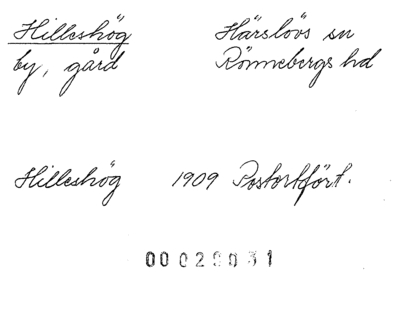 Hilleshög Härslövs sn
by, gård Rönnebergs hd
Hilleshög 1909 Postortfört.